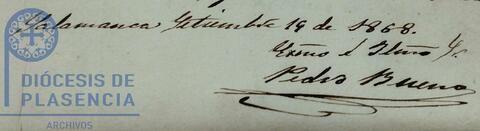 Salamanca Setiembre 19 de 1868.
Exmo é Ilmo Sr.
Pedro Bueno
DIÓCESIS DE
PLASENCIA
ARCHIVOS